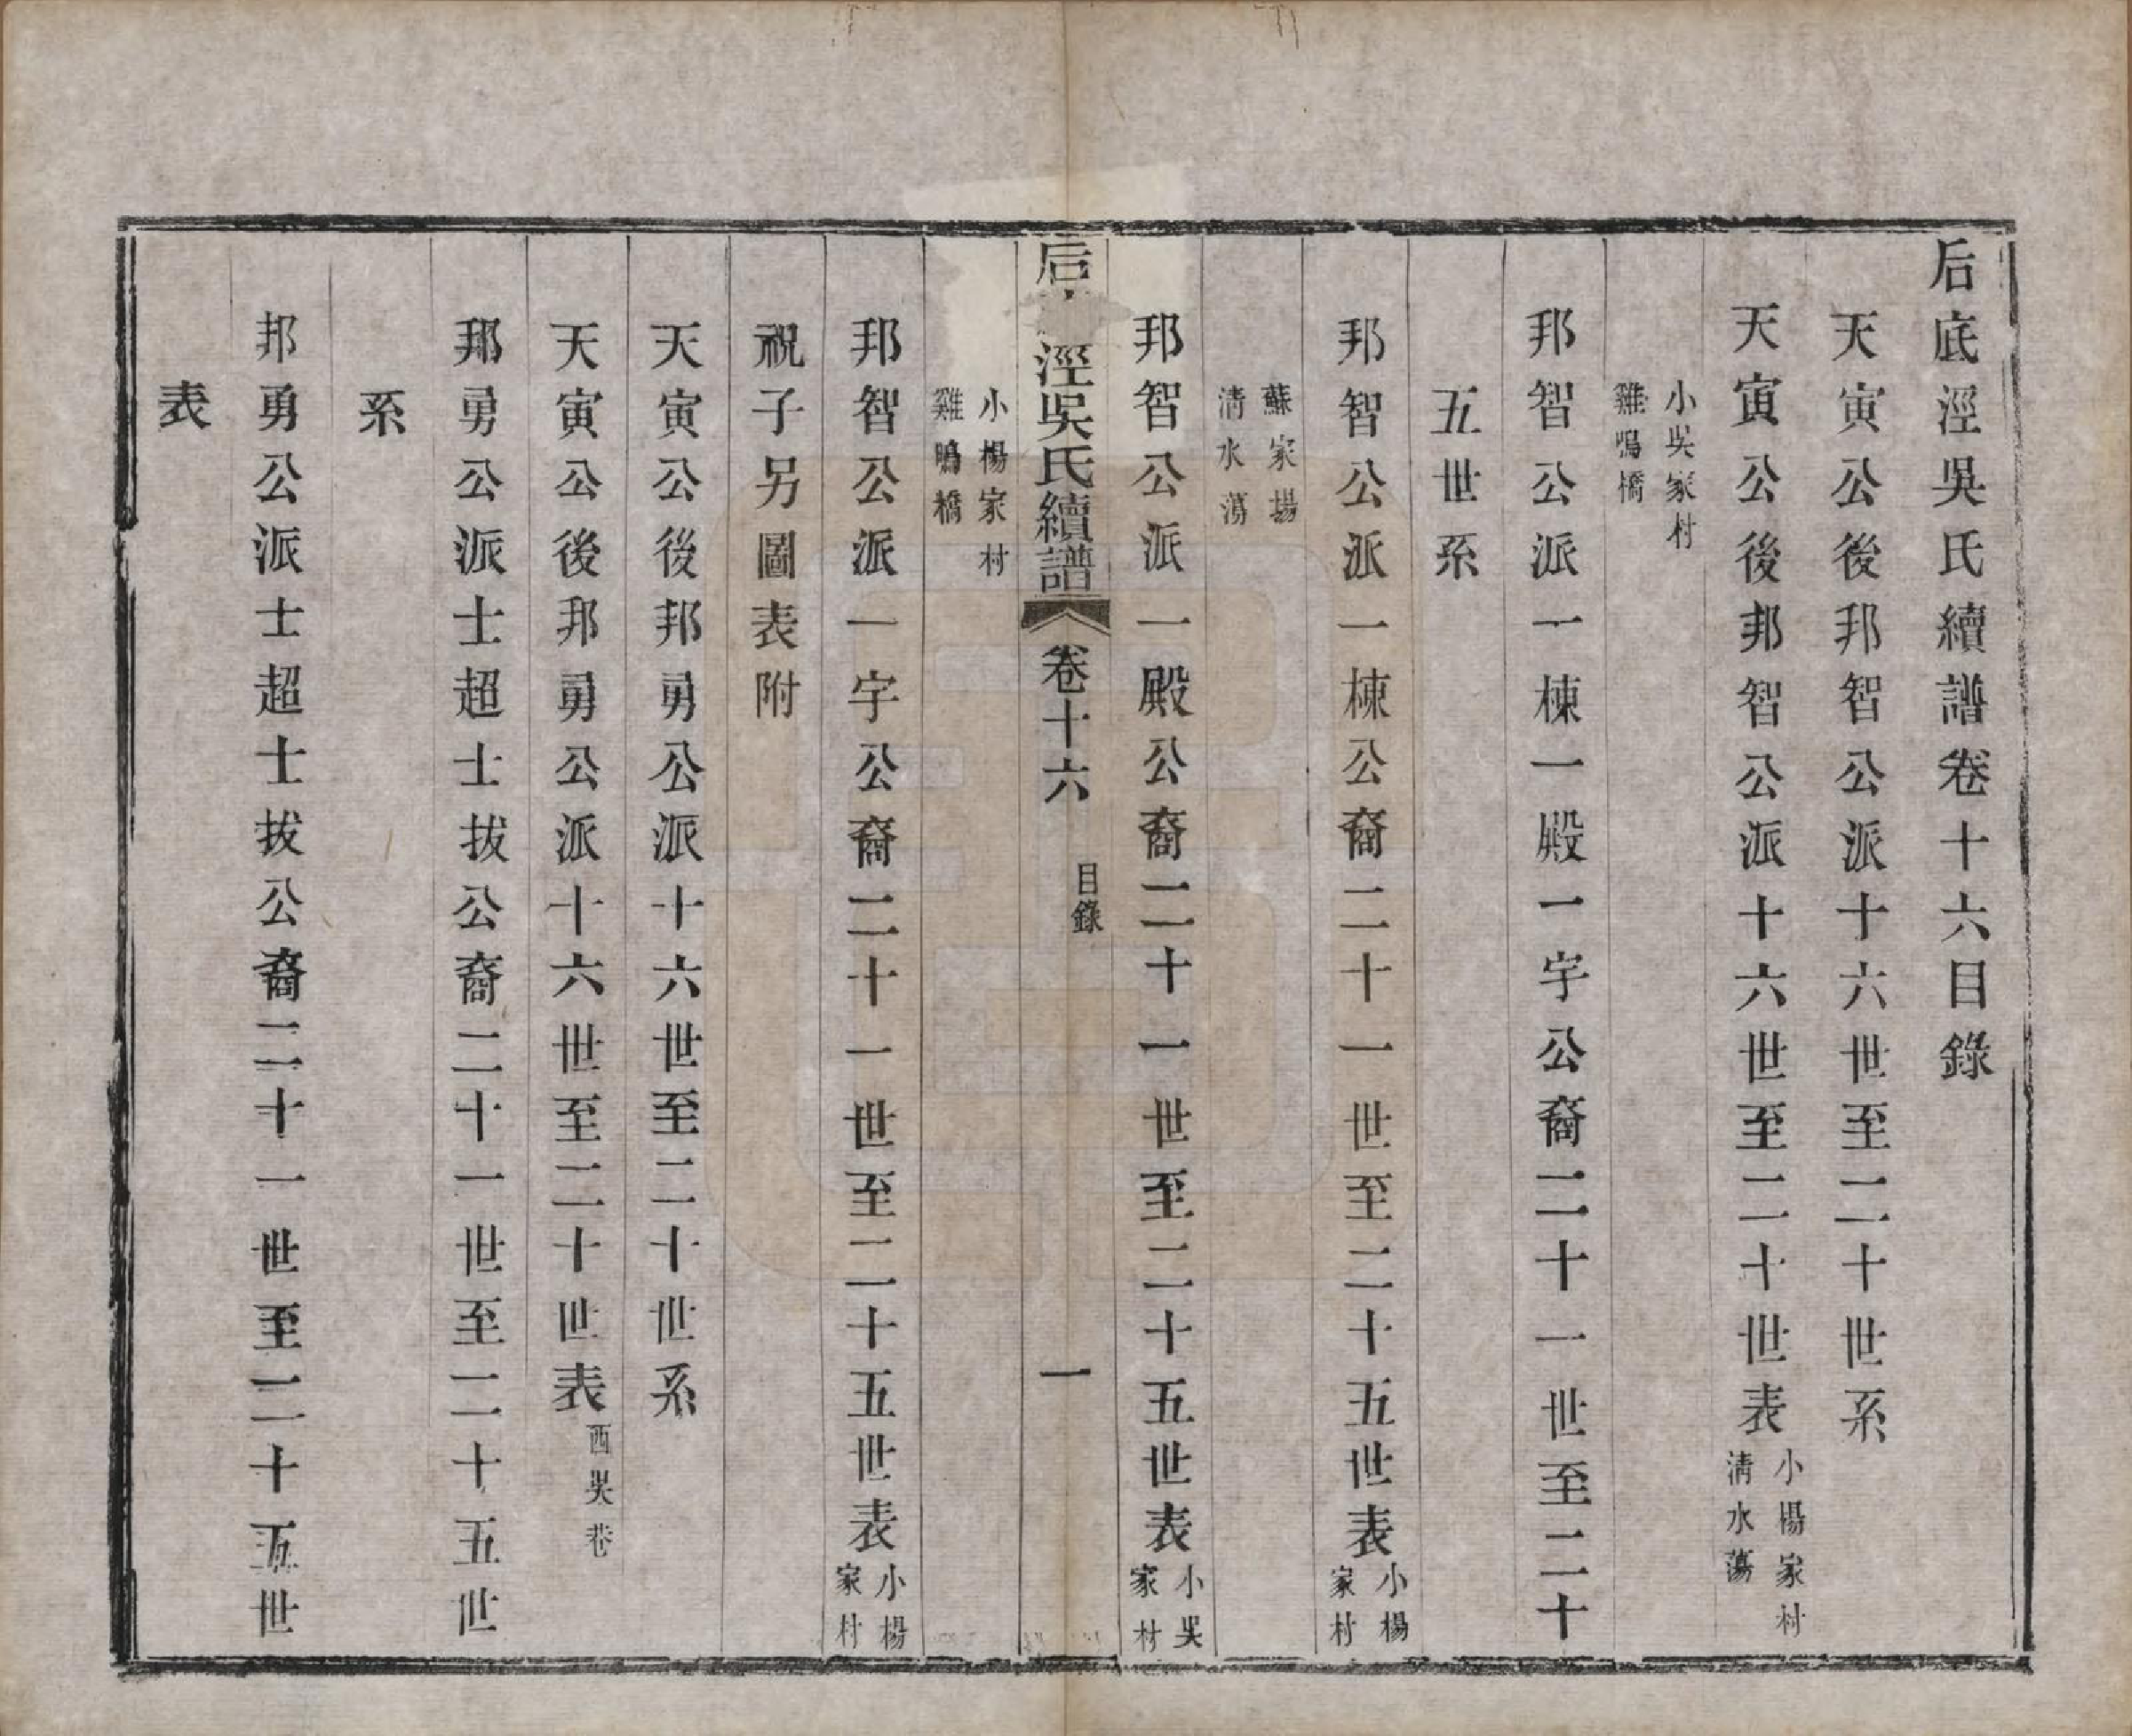 后底涇吳氏續譜卷十六目錄
天寅公後邦智公派十六世至二十世系
天寅公後邦智公派十六世至二十世表小楊家村清水蕩
小吳家村雞鳴橋
邦智公派一棟一殿一宇公裔二十一世至二十
五世系
邦智公派一棟公裔二十一世至二十五世表小楊家村
蘇家場清水蕩
邦智公派一殿公裔二十一世至二十五世表小吳家村
后涇吳氏續譜 卷十六 目錄 一
小楊家村雞鳴橋
邦智公派一宇公裔二十一世至二十五世表小楊家村
祝子另圖表附
天寅公後邦勇公派十六世至二十世系
天寅公後邦勇公派十六世至二十世表西吳巷
邦勇公派士超士拔公裔二十一世至二十五世
系
邦勇公派士超士拔公裔二十一世至二十五世
表